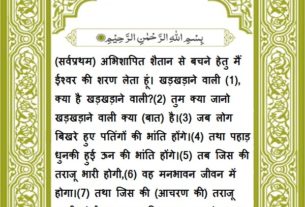 بِسْمِ اللّٰهِ الرَّحْمٰنِ الرَّحِيْمِ
(सर्वप्रथम) अभिशापित शैतान से बचने हेतु मैं
ईश्वर की शरण लेता हूं। खड़खड़ाने वाली (1),
क्या है खड़खड़ाने वाली?(2) तुम क्या जानो
खड़खड़ाने वाली क्या (बात) है।(3) जब लोग
बिखरे हुए पतिंगों की भांति होंगे।(4) तथा पहाड़
धुनकी हुई ऊन की भांति होंगे।(5) तब जिस की
तराजू भारी होगी,(6) वह मनभावन जीवन में
होगा।(7) तथा जिस की (आचरण की) तराजू